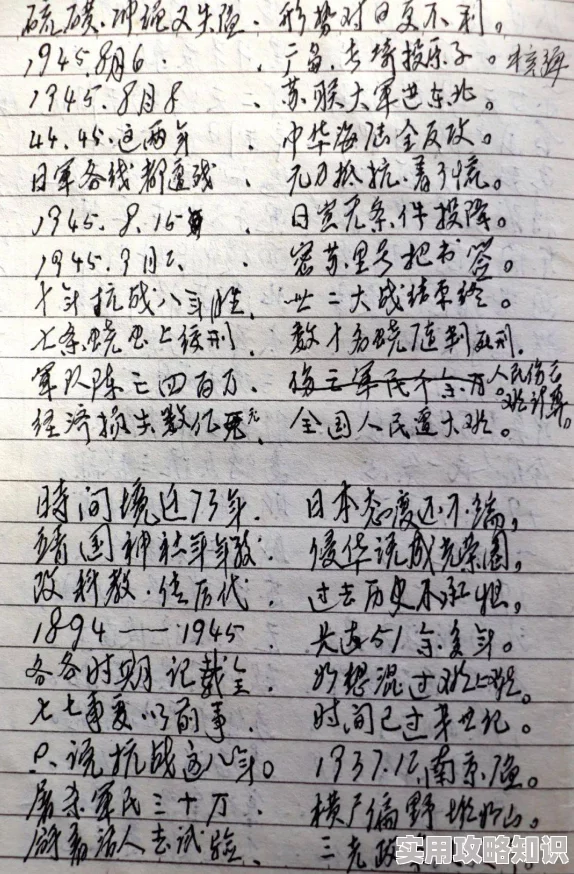 硫磺、冲绳又失陷、形势对日更不利。
1945.8月6、广岛、长崎投原子。核弹
1945.8月8、苏联大军进东北。
44.45.这两年、中华海陆全反攻。
日军各线都遭残、无力抵抗、着了慌。
1945.8.15、日寇无条件投降。
1945.9月2、密苏里号把书签。
十年抗战八年胜、二大战结束终。
七条上绞刑、数十名随判死刑。
军队阵亡四百万、人民伤亡难计算。
经济损失数亿元、全国人民遭大难。
时间境近73年、日本态度还不端,
国神社年年、侵华说成光荣圈,
改科教、传后代、过去历史不承担,
1894——1945、长达51余多年。
各各时期记载全、妙想混过难上难。
七七事变以前事、时间已过半世纪。
只说抗战这八年。1937.12,南京陷。
屠杀军民三十万、横尸遍野堆如山。
活人去试验、三光政
实用攻略知识